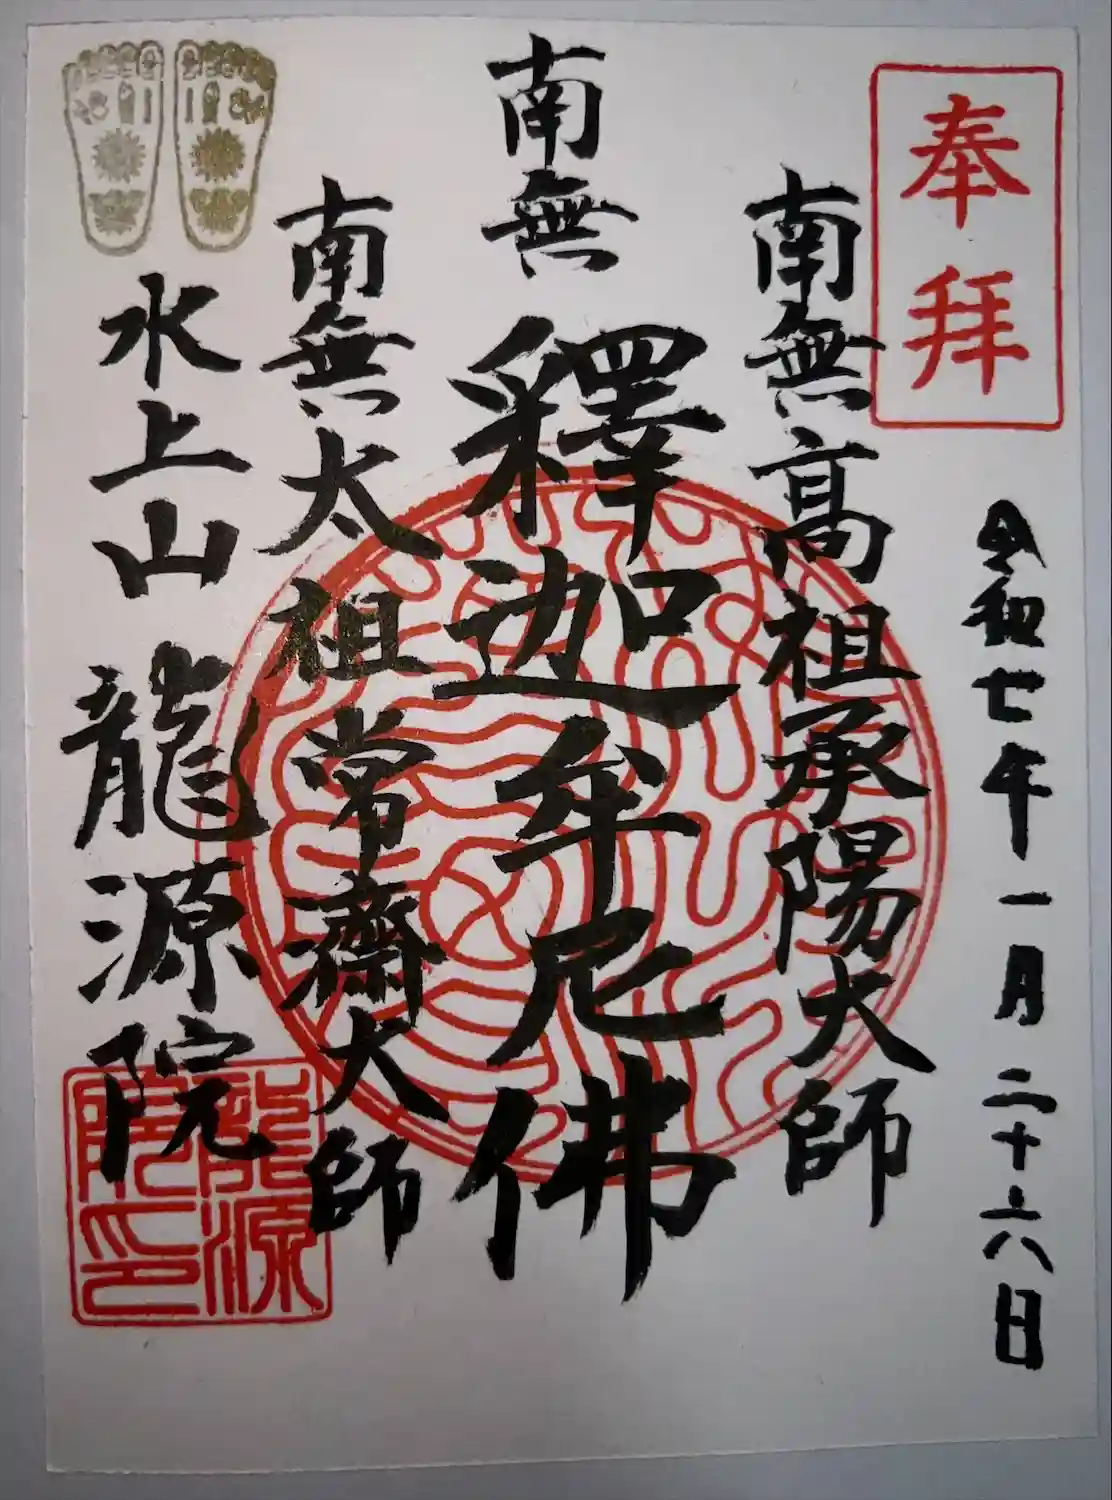 奉拜
令和七年一月二十六日
南無高祖承陽大師
南無釋迦牟尼佛
南無太祖常齋大師
水上山 龍源院
龍源院印